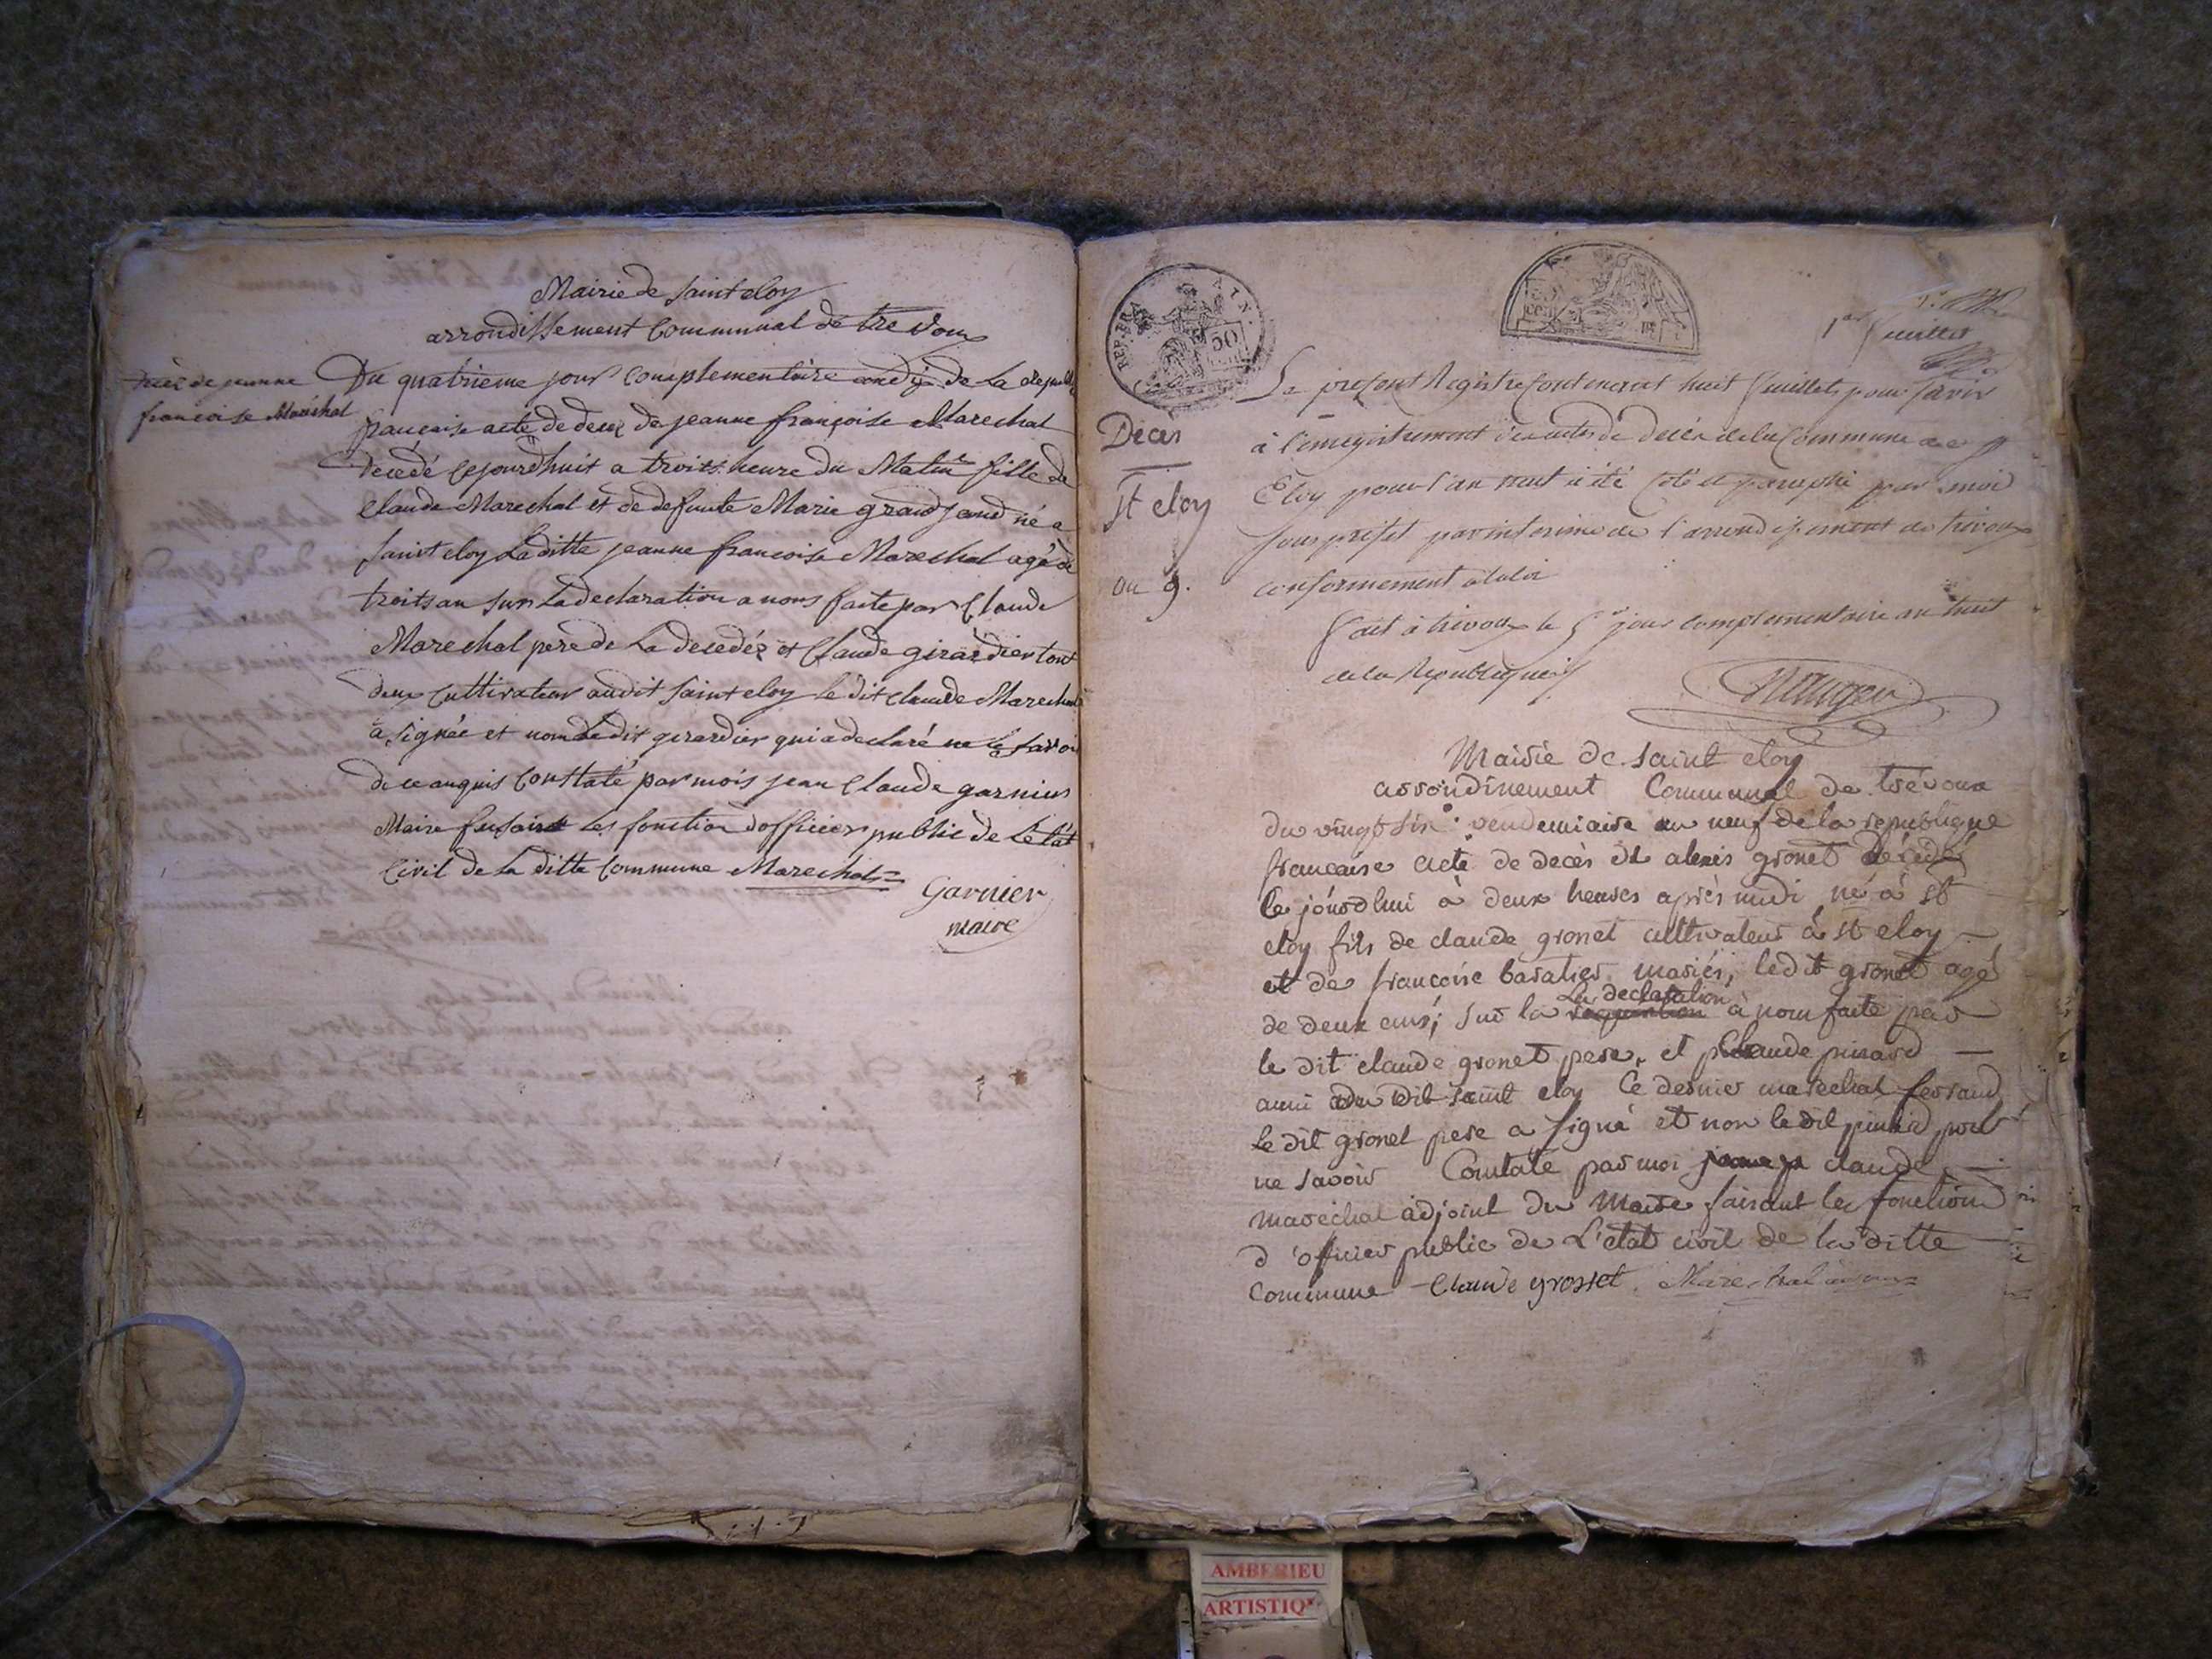 Mairie de saint eloy
arrondissement Communal de trevoux
jeanne
francoise Maréchal
Du quatrieme jour complementaire de La republi
française acte de decez de jeanne françoise Marechal
decedé cejourdhuit a troits heure du Matin fille de
Claude Marechal et de defunte Marie grand né a
saint eloy Laditte jeanne francoise Marechal agé de
troits an sur La declaration a nous faite par Claude
Marechal pere de La decedéz et Claude girardier tout
deux cultivateur audit saint eloy le dit claude Marechal
a signée et non Ledit girardier qui a declaré ne le savoir
de ce anquis Constaté par mois jean Claude garnier
Maire faisait les fonction dofficier public de Létat
Civil de La ditte Commune Marechal
Garnier
maire
REP. FRA
AIN.
50
1er feuillet
Le present Registre contenant huit feuillets pour servir
à l'enregistrement des actes de Decès de la Commune de St
Eloy pour l'an neuf a été coté et paraphé par moi
sous prefet par interim de l'arrondissement de trévoux
conformement à la loi
fait à trévoux le 5e jour complementaire an huit
de la République
Décès
St eloy
an 9.
Mairie de saint eloy
arrondinement Communal de trévoux
du vingt six vendemiaire an neuf de la republique
francaise acte de decès de alexis gronet décédé
le jourdhui à deux heures après midi né à st
eloy fils de claude gronet cultivateur à st eloy
et de francoise baratier mariés, ledit gronet agé
de deux ans; sur la La declaration à nous faite par
le dit claude gronet pere, et Claude pinard
ami du dit saint eloy Ce dernier marechal ferrand
le dit gronet pere a signé et non le dit pinard pour
ne savoir Constaté par moi claude
maréchal adjoint du Maire faisant les fonction
d'officier public de L'état civil de la ditte
Commune Claude grosset Marechal
AMBERIEU
ARTISTIQ